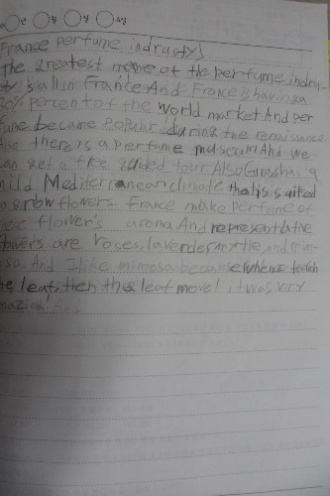 년 월 일 요일
France perfume indrusty]
The greatest name of the perfume indru-
ty is all in France And France is having a
30% percent of the world market And per
fume became popular during the renaissance.
there is a perfume museum And we
can get a free guided tour. Also Grass has a
mild Mediterranean climate that is suited
to grow flowers. France make perfume of
flower's aroma And representative
flowers are roses, lavender, myrtle, and mim-
osa. And I like mimosa because when I touch
the leaf, then the leaf move! it was very